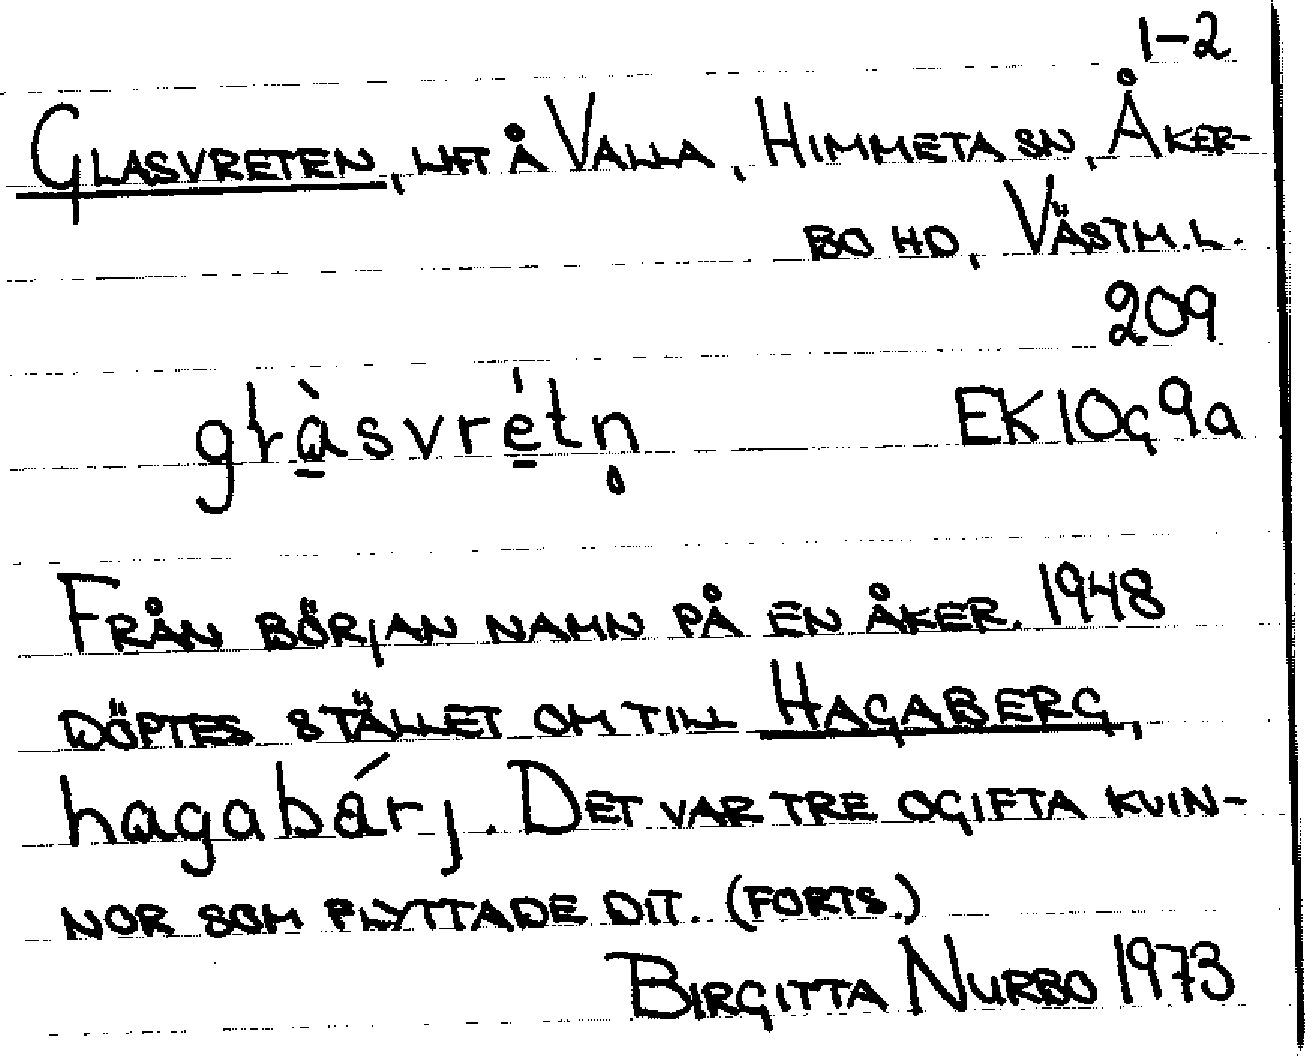 1-2
GLASVRETEN, LHT Å VALLA, HIMMETA SN, ÅKER-
BO HD, VÄSTM.L.
209
glàsvrétn̥ EK 10g9a
FRÅN BÖRJAN NAMN PÅ EN ÅKER. 1948
DÖPTES STÄLLET OM TILL HAGABERG,
hagabárj. DET VAR TRE OGIFTA KVIN-
NOR SOM FLYTTADE DIT. (FORTS.)
BIRGITTA NURBO 1973